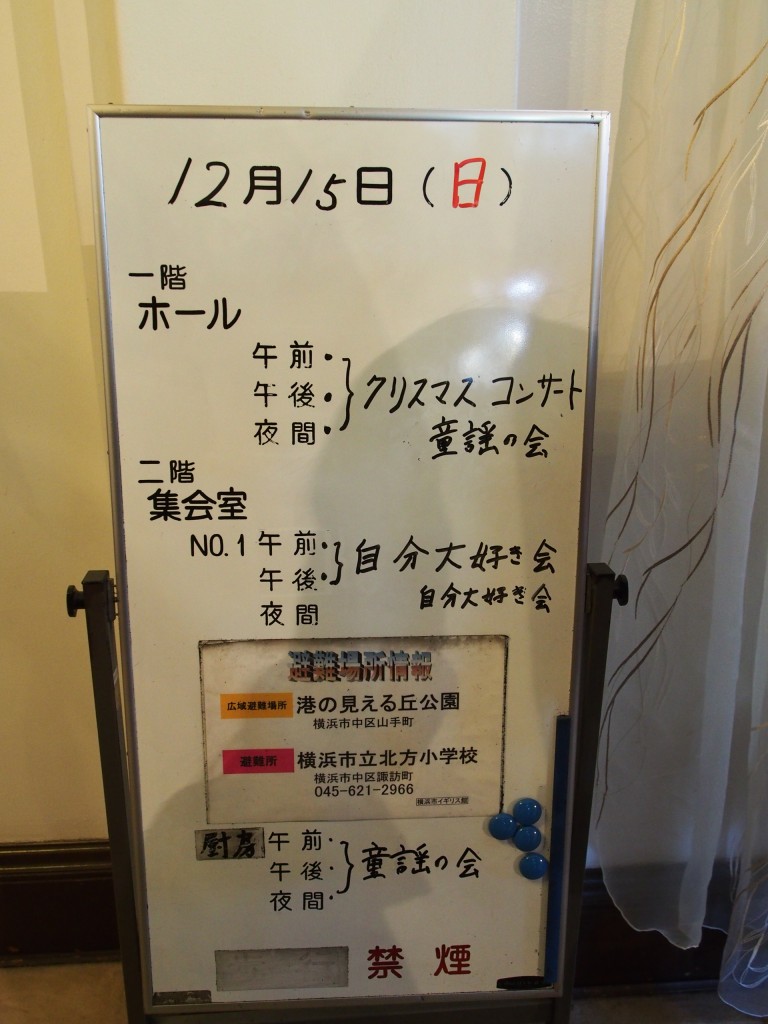 12月15日(日)
一階
ホール
午前・
午後・ クリスマス コンサート
夜間・ 童謡の会
二階
集会室
NO.1 午前・ 自分大好き会
午後・
夜間 自分大好き会
避難場所情報
広域避難場所 港の見える丘公園
横浜市中区山手町
避難所 横浜市立北方小学校
横浜市中区諏訪町
045-621-2966
横浜市イギリス館
厨房 午前・
午後・ 童謡の会
夜間・
禁煙